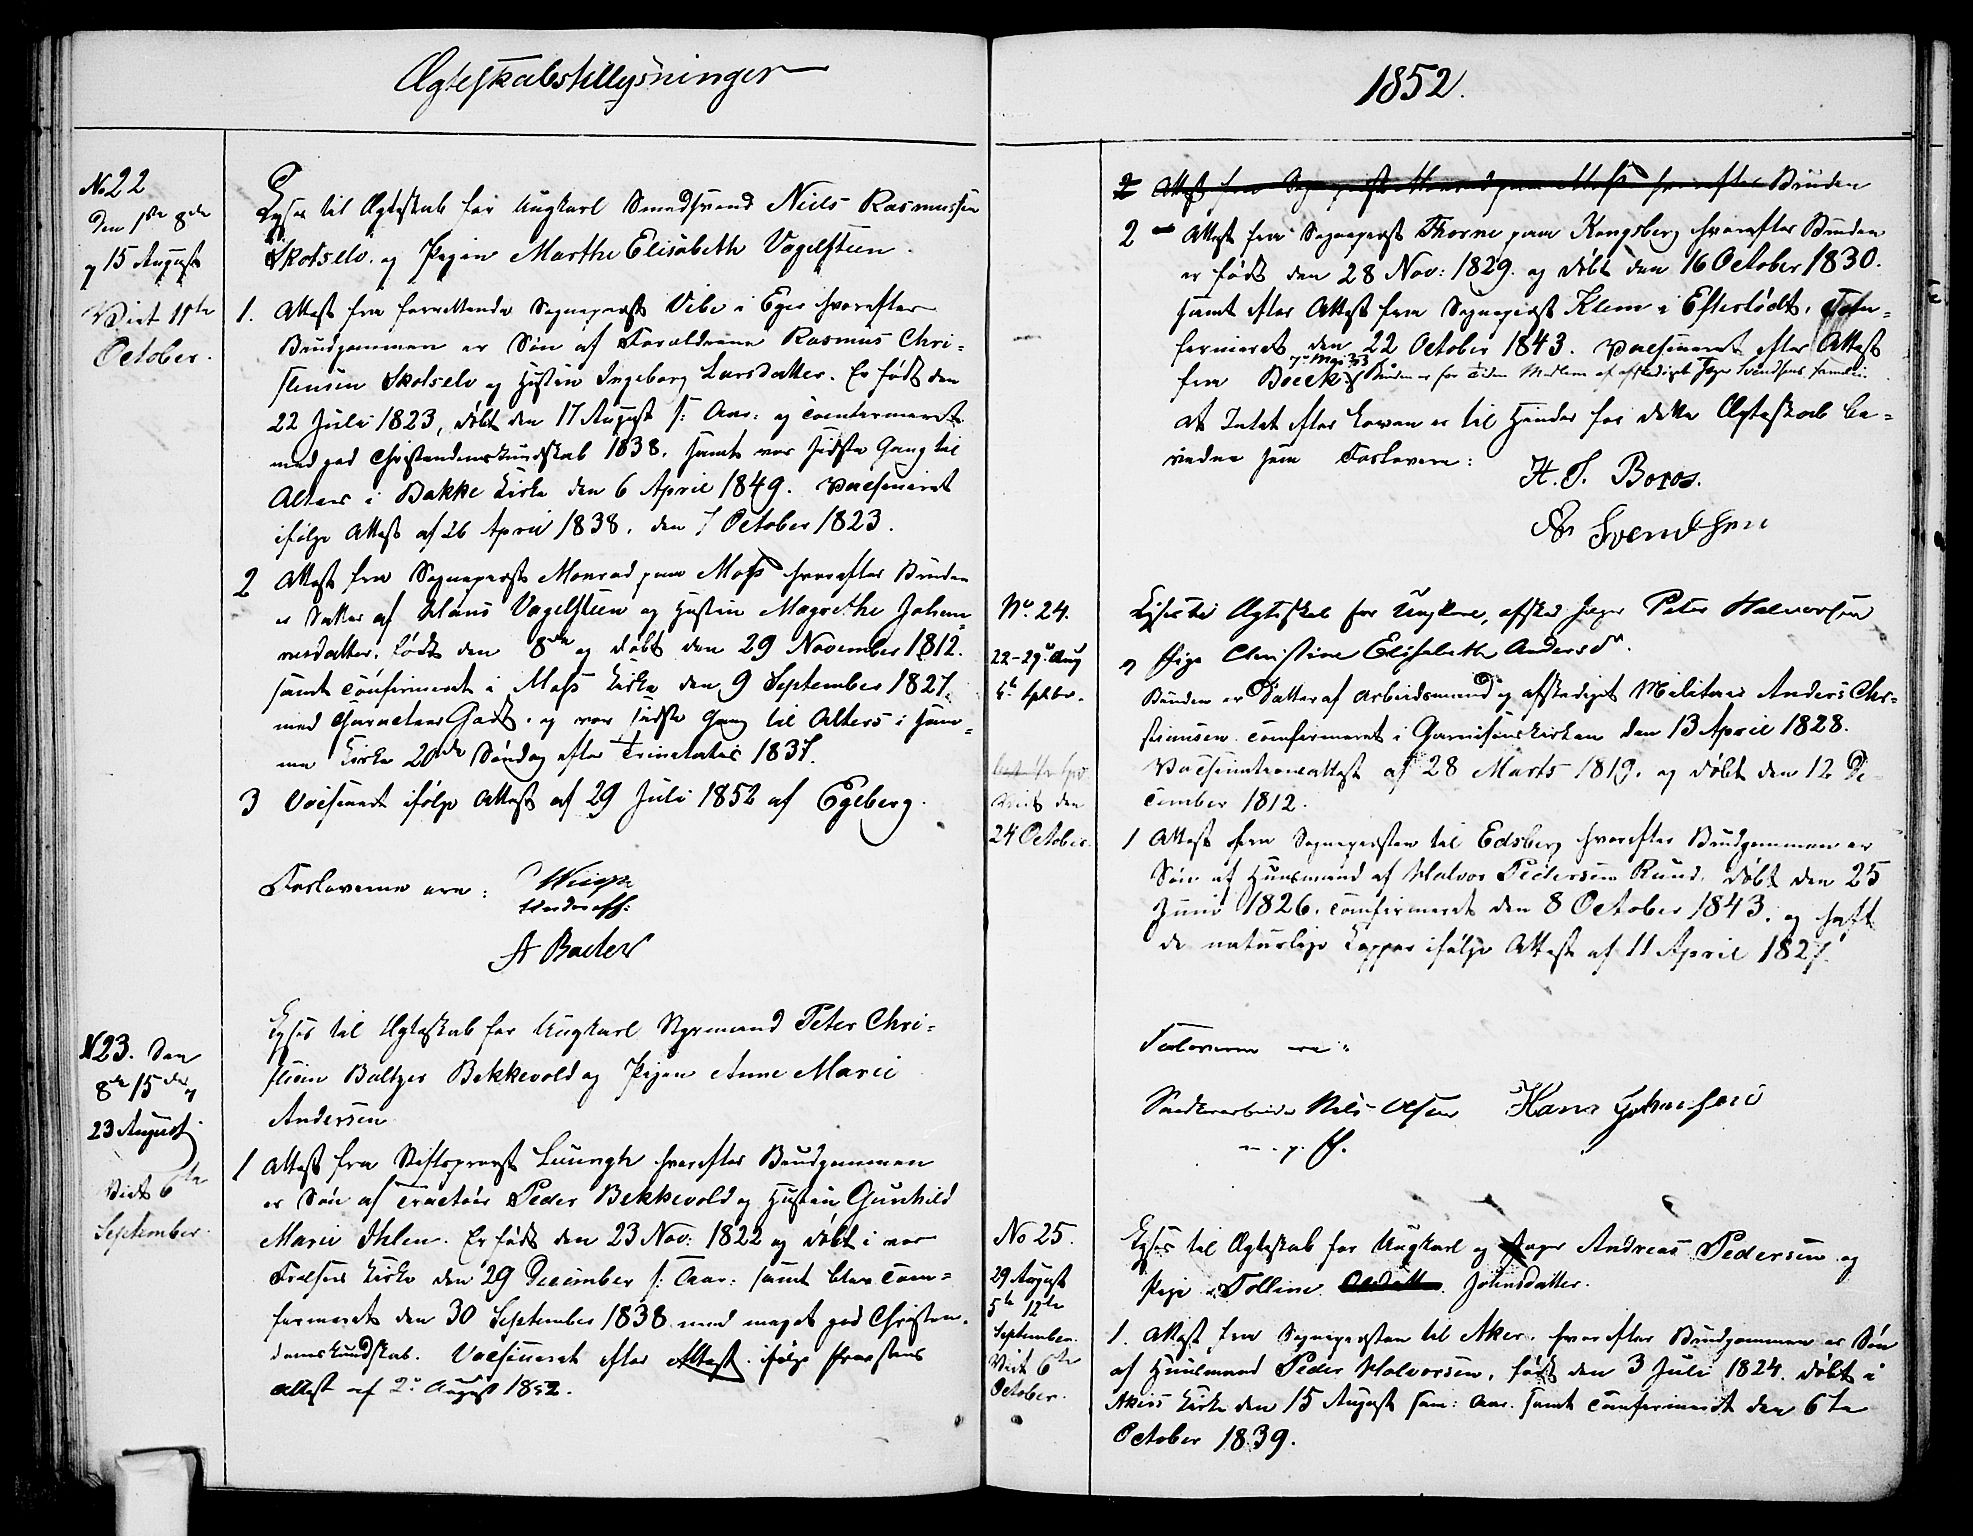 Ægteskabstillysninger
No 22
Den 1ste 8de
og 15 August
Viet 11te
October.
Lyses til Ægteskab for Ungkarl Smedsvend Niels Rasmussen
Skotselv. og Pigen Marthe Elisabeth Vogelsteen.
1. Attest fra forrettende Sognepræst Vibe i Eger hvorefter
Brudgommen er Søn af Forældrene Rasmus Chri-
stensen Skotselv og Hustru Ingeborg Larsdatter. Er født den
22 Juli 1823, døbt den 17 August s: Aar: og Confirmeret
med god Christendomskundskab 1838. samt var sidste Gang til
Alters i Bakke Kirke den 6 April 1849. Vacsineret
ifølge Attest af 26 April 1838. den 7 October 1823.
2 Attest fra Sognepræst Monrad paa Moss hvorefter Bruden
er Datter af Hans Vogelsteen og Hustru Magrethe Johan-
nesdatter. født den 8de og døbt den 29 November 1812.
samt Confirmeret i Moss Kirke den 9 September 1827.
med Caracteer Godt. og var sidste Gang til Alters i sam-
me Kirke 20de Søndag efter Trinitatis 1837.
3 Vacsineret ifølge Attest af 29 Juli 1852 af Egeberg.
Forloverne ere:
A Bader
N23. Den
8de 15de og
23 August
Viet 6te
September.
Lyses til Ægteskab for Ungkarl Styrmand Peter Chri-
stian Baltzer Bekkevold og Pigen Anne Marie
Andersen
1 Attest fra Stiftsprovst Luungh hvorefter Brudgommen
er Søn af Tracteur Peder Bekkevold og Hustru Gunhild
Marie Ihlen. Er født den 23 Nov: 1822 og døbt i vor
Frelsers Kirke den 29 December s: Aar: samt blev Con-
firmeret den 30 September 1838 med meget god Christen-
domskundskab. Vacsineret efter Attest. ifølge Provstens
Attest af 2den August 1852.
1852.
2 Attest fra Sognepræst Monrad paa Moss hvorefter Bruden
2 Attest fra Sognepræst Thorne paa Kongsberg hvorefter Bruden
er født den 28 Nov: 1829. og døbt den 16 October 1830.
samt efter Attest fra Sognepræst Klem i Efterlødt. Con-
firmeret den 22 October 1843. Vacsineret efter Attest
fra Boeck 7de Mai 33 Bruden er for Tiden Medlem af afskediget Jæger Svendsens Familie.
At Intet efter Loven er til Hinder for dette Ægteskab be-
vidne som Forlovere:
H. T. Boros.
Svendsen
No. 24.
22-29de Aug
5te Septbr.
Viet den
24 October.
Lyses til Ægteskab for Ungkarl, afsked Jæger Peter Halvorsen
og Pige Christine Elisabeth Andersdr.
Bruden er Datter af Arbeidsmand og afskediget Militair Anders Chr-
stiansen Confirmeret i Garnisonskirken den 13 April 1828.
Vacsinationsattest af 28 Marts 1819. og døbt den 12 De-
cember 1812.
1 Attest fra Sognepræsten til Edsberg hvorefter Brudgommen er
Søn af Huusmand af Halvor Pedersen Ruud. døbt den 25
Juni 1826. Confirmeret den 8 October 1843. og haft
de naturlige Kopper ifølge Attest af 11 April 1827.
Forloverne ere:
Niels Olsen Hans Johnsen
m. p. P.
No 25.
29 August
5te 12te
September.
Viet 6te
October.
Lyses til Ægteskab for Ungkarl og Jæger Andreas Pedersen og
Pige Tolline Johnsdatter.
1. Attest fra Sognepræsten til Aker. hvorefter Brudgommen er Søn
af Huusmand Peder Halvorsen. født den 3 Juli 1824. døbt i
Akers Kirke den 15 August sam: Aar. samt Confirmeret den 6te
October 1839.